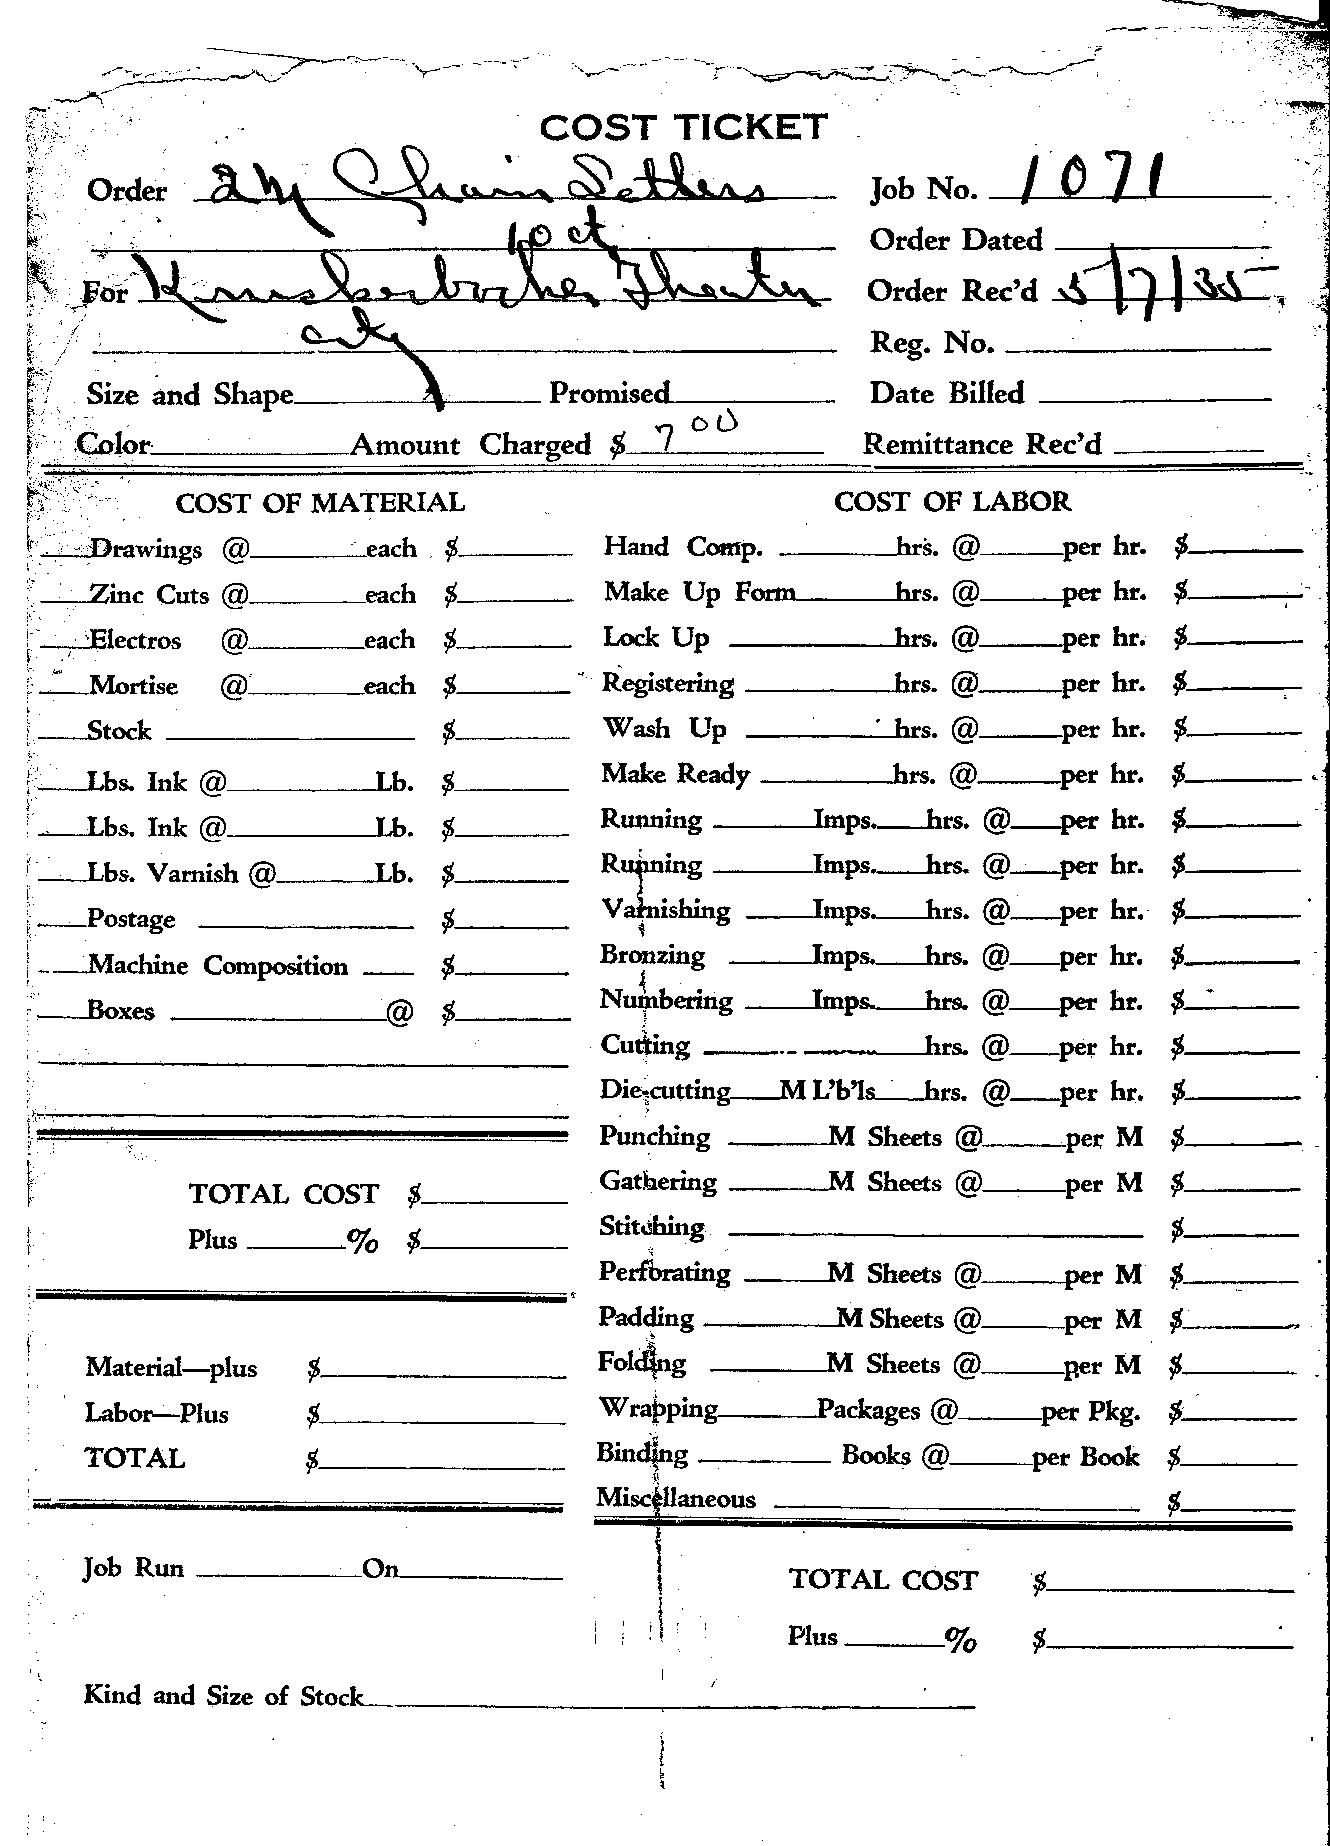 COST TICKET
Order 2M Chain Letters Job No. 1071
10 ct Order Dated
For Knickerbocker Theater Order Rec'd 5/7/35
city Reg. No.
Size and Shape Promised Date Billed
Color Amount Charged $ 7 00 Remittance Rec'd
COST OF MATERIAL
Drawings @ each $
Zinc Cuts @ each $
Electros @ each $
Mortise @ each $
Stock $
Lbs. Ink @ Lb. $
Lbs. Ink @ Lb. $
Lbs. Varnish @ Lb. $
Postage $
Machine Composition $
Boxes @ $
TOTAL COST $
Plus % $
Material—plus $
Labor—Plus $
TOTAL $
Job Run On
COST OF LABOR
Hand Comp. hrs. @ per hr. $
Make Up Form hrs. @ per hr. $
Lock Up hrs. @ per hr. $
Registering hrs. @ per hr. $
Wash Up hrs. @ per hr. $
Make Ready hrs. @ per hr. $
Running Imps. hrs. @ per hr. $
Running Imps. hrs. @ per hr. $
Varnishing Imps. hrs. @ per hr. $
Bronzing Imps. hrs. @ per hr. $
Numbering Imps. hrs. @ per hr. $
Cutting hrs. @ per hr. $
Die-cutting M L'b'ls hrs. @ per hr. $
Punching M Sheets @ per M $
Gathering M Sheets @ per M $
Stitching $
Perforating M Sheets @ per M $
Padding M Sheets @ per M $
Folding M Sheets @ per M $
Wrapping Packages @ per Pkg. $
Binding Books @ per Book $
Miscellaneous $
TOTAL COST $
Plus % $
Kind and Size of Stock